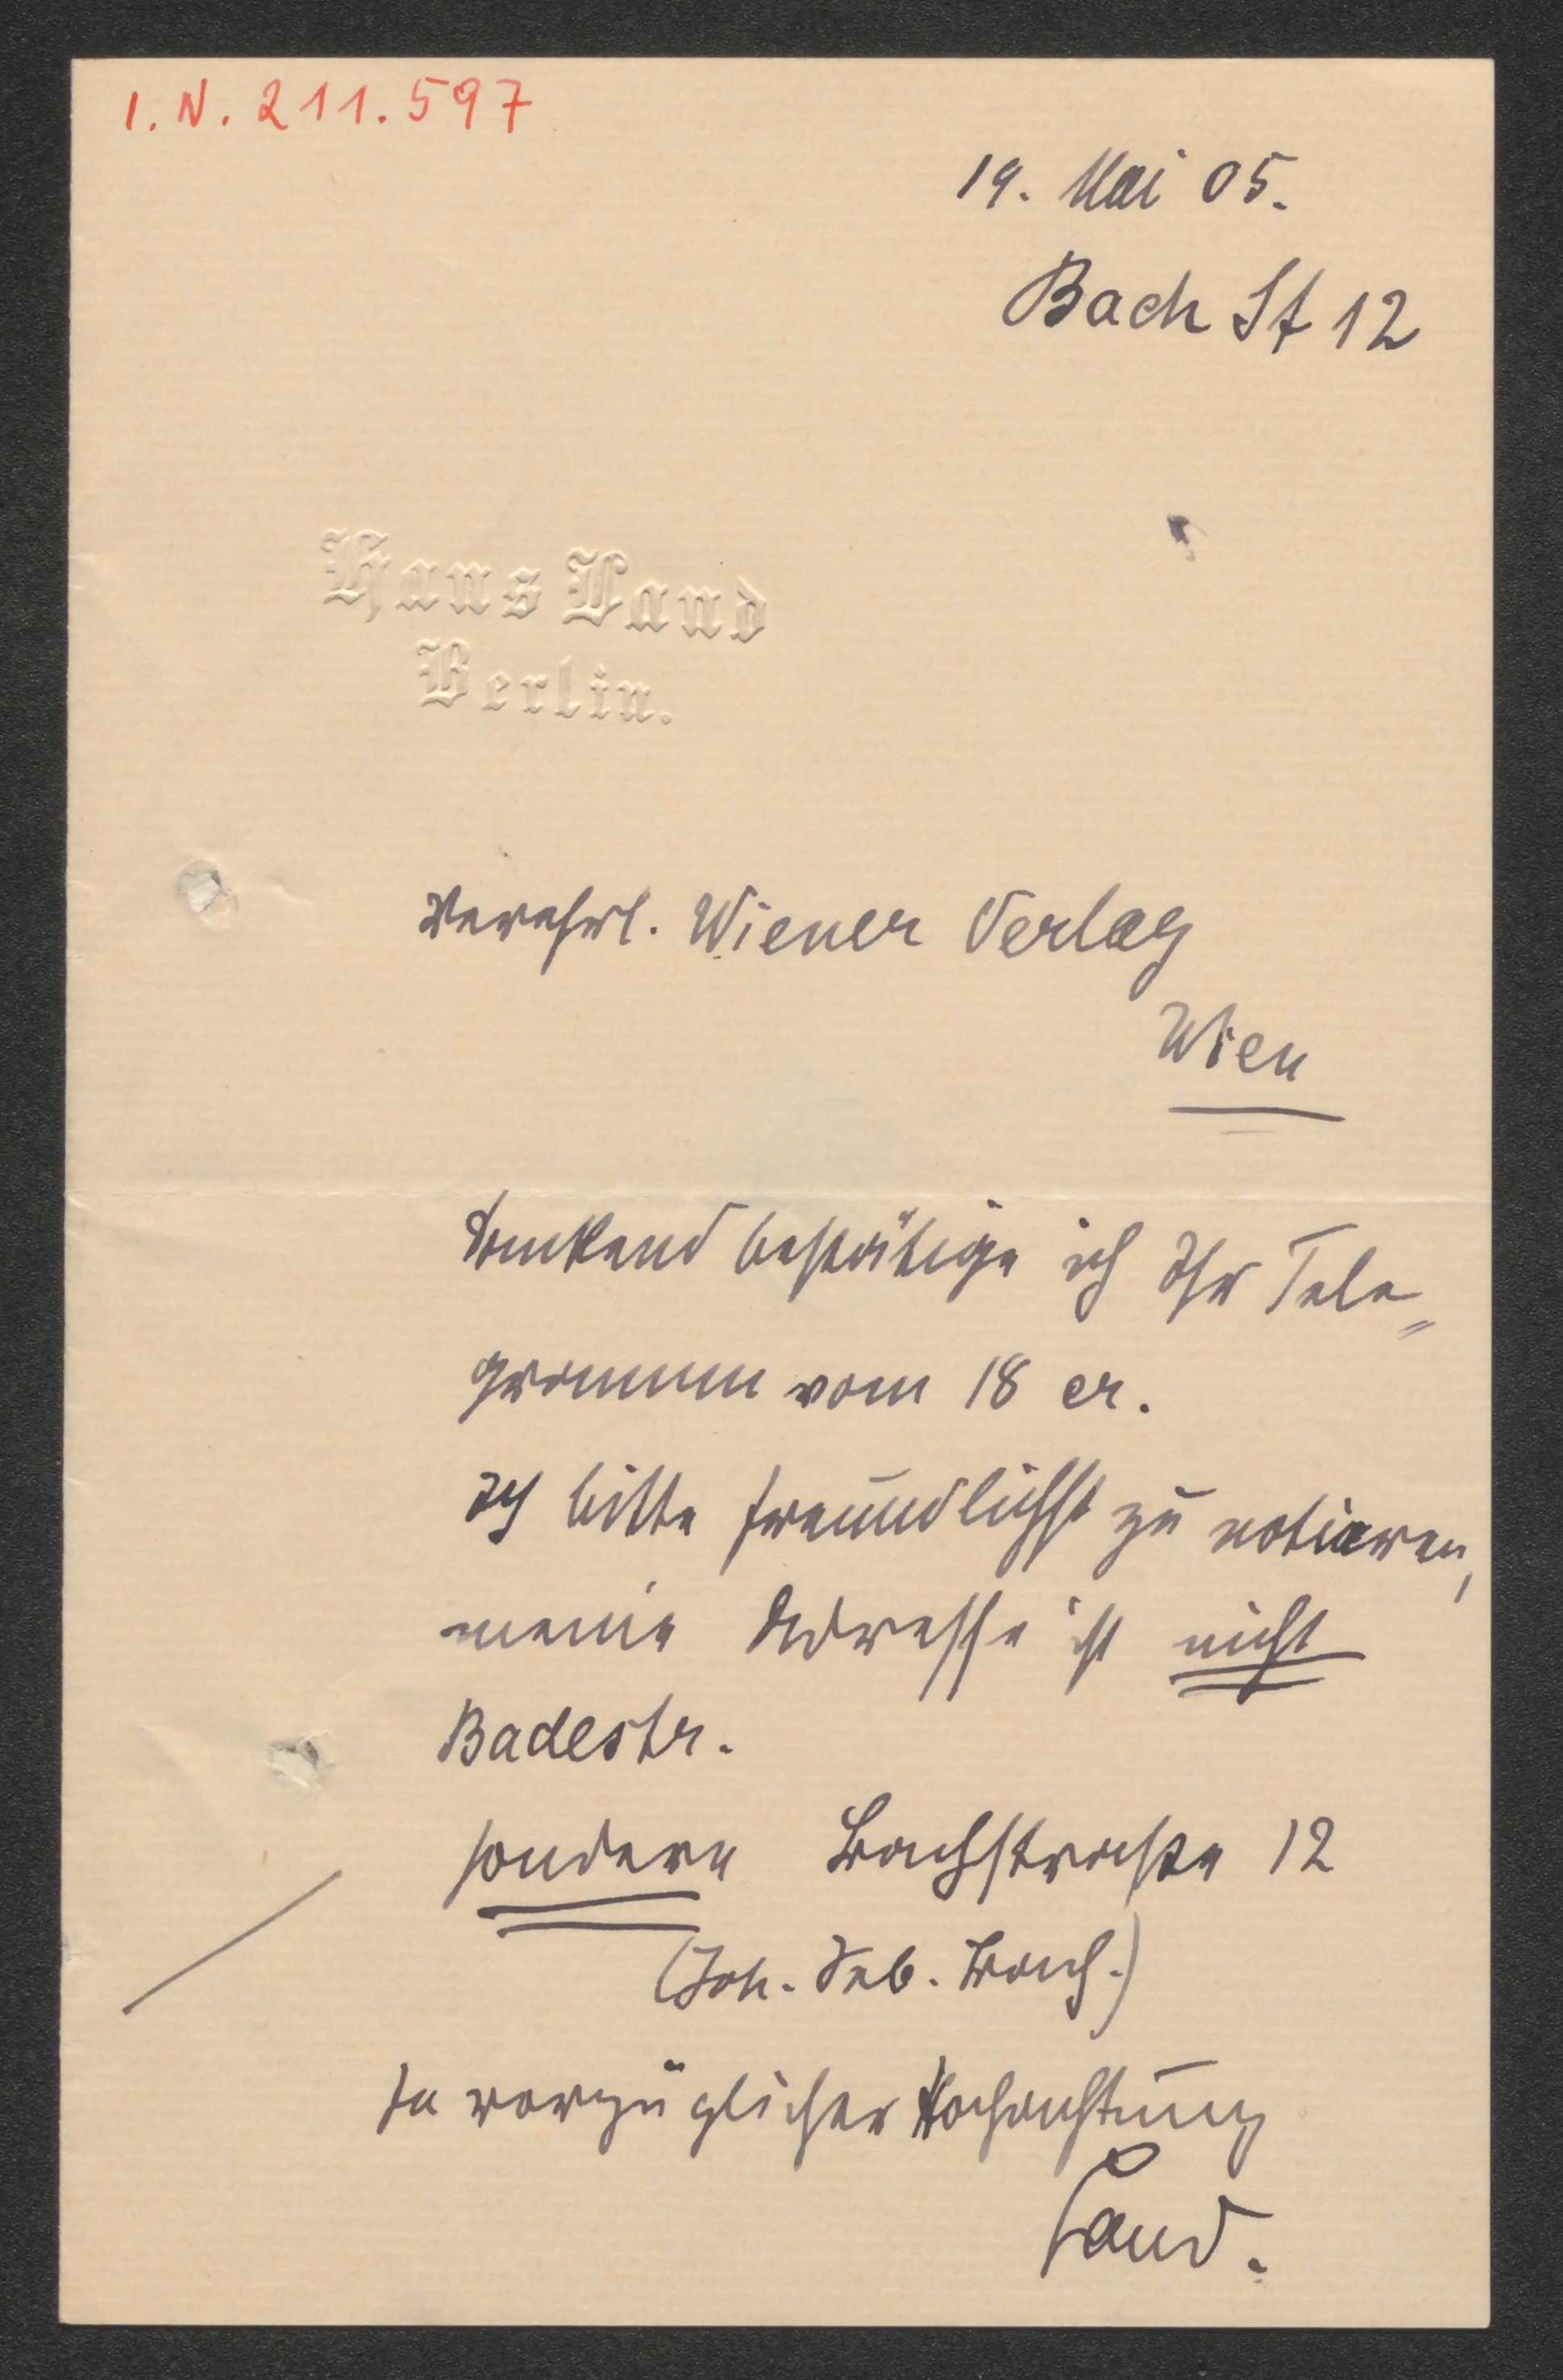 I. N. 211.597
19. Mai 05.
Bach St 12
Hans Land
Berlin.
Verehrl. Wiener Verlag
Wien
Dankend bestätige ich Ihr Tele=
gramm vom 18 cr.
Ich bitte freundlichst zu notieren,
meine Adresse ist nicht
Badestr.
sondern Bachstraße 12
(Joh. Seb. Bach.)
In vorzüglicher Hochachtung
Land.